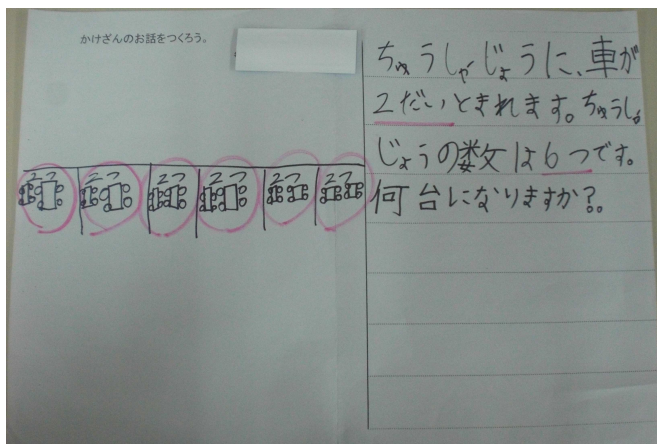 かけざんのお話をつくろう。
2つ 2つ 2つ 2つ 2つ 2つ
ちゅうしゃじょうに、車が
2だいとまれます。ちゅうしゃ
じょうの数は6つです。
何台になりますか?。